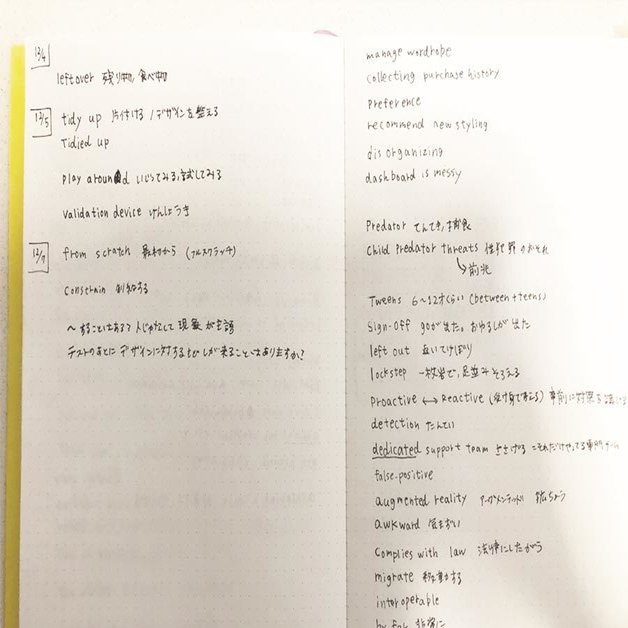 12/4
leftover 残り物, 食べ物
12/5
tidy up 片付ける / デザインを整える
Tidied up
Play around いじってみる, 試してみる
Validation device けんしょうき
12/7
from scratch 最初から (フルスクラッチ)
Constrain 制約する
〜することはある? 人じゃなくて 現象 が主語
テストのあとに デザインに対する が来ることはありますか?
manage wordrobe
collecting purchase history
Preference
recommend new styling
disorganizing
dashboard is messy
Predator てんてき, 捕食
Child Predator threats 性犯罪 のおそれ
↳ 前兆
Tweens 6〜12才くらい (between + teens)
Sign-off goが出た。 が出た
left out 置いてけぼり
lockstep 一枚岩で, 足並みそろえる
Proactive ↔ Reactive (受け身で) 事前に対策を
detection たんてい
dedicated support team ささげる =それだけやってる専門チーム
false-positive
augmented reality オーグメンテッド 拡ちょう
awkward 気まずい
Complies with law 法律にしたがう
migrate 移動する
interoperable
by far 非常に